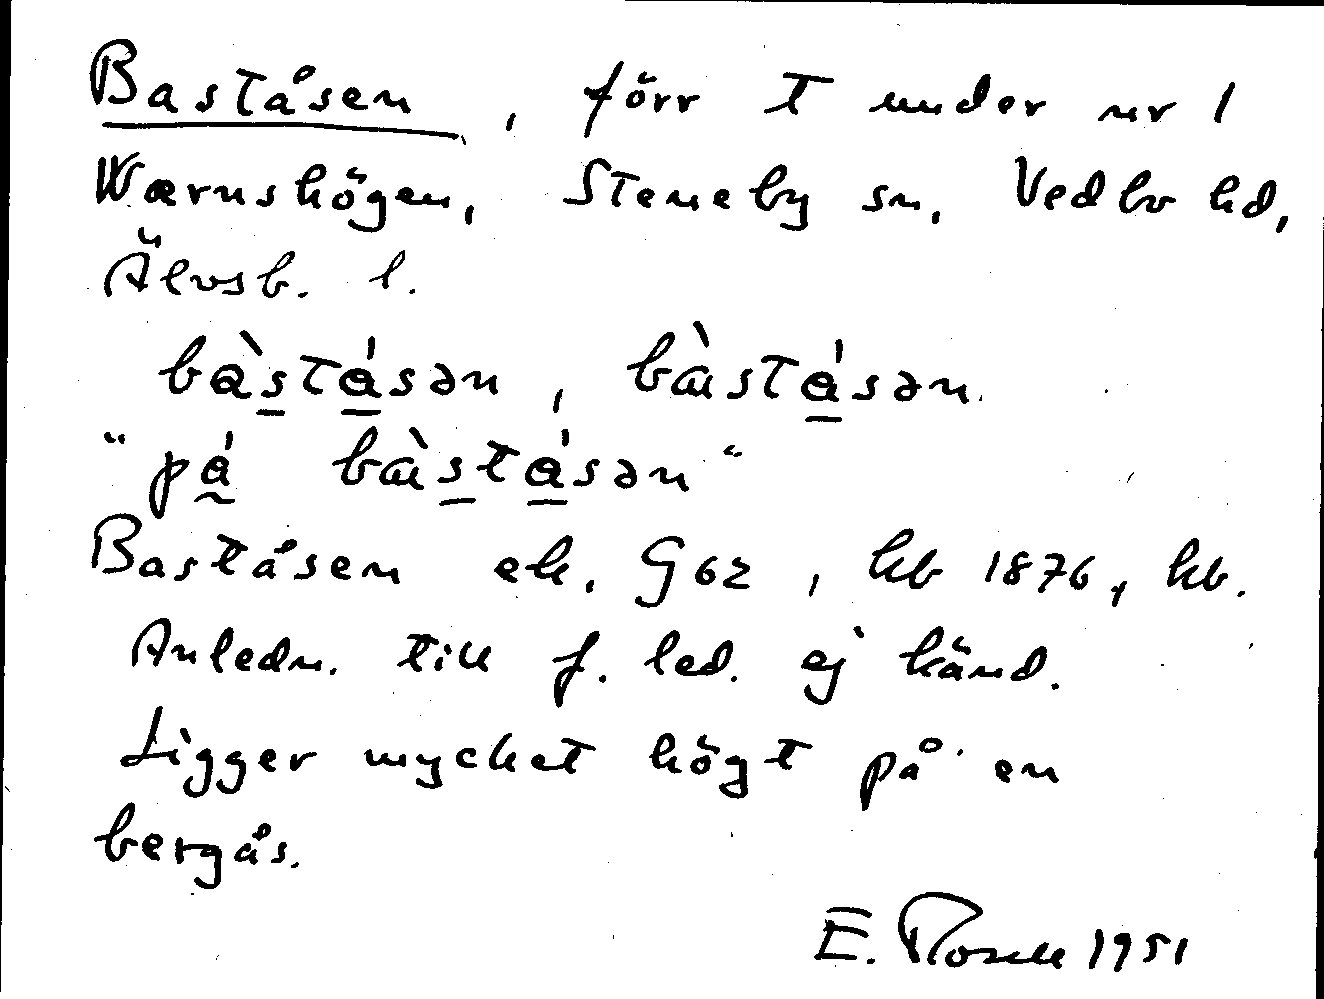 Baståsen, förr T under nr 1
Wærnshögen, Steneby sn, Vedbo hd,
Älvsb. l.
bàstásən, bàstásən.
"på bàstásən"
Baståsen ek. G62, hb 1876, kb.
Anledn. till f. led. ej känd.
Ligger mycket högt på en
bergås.
E. 1951